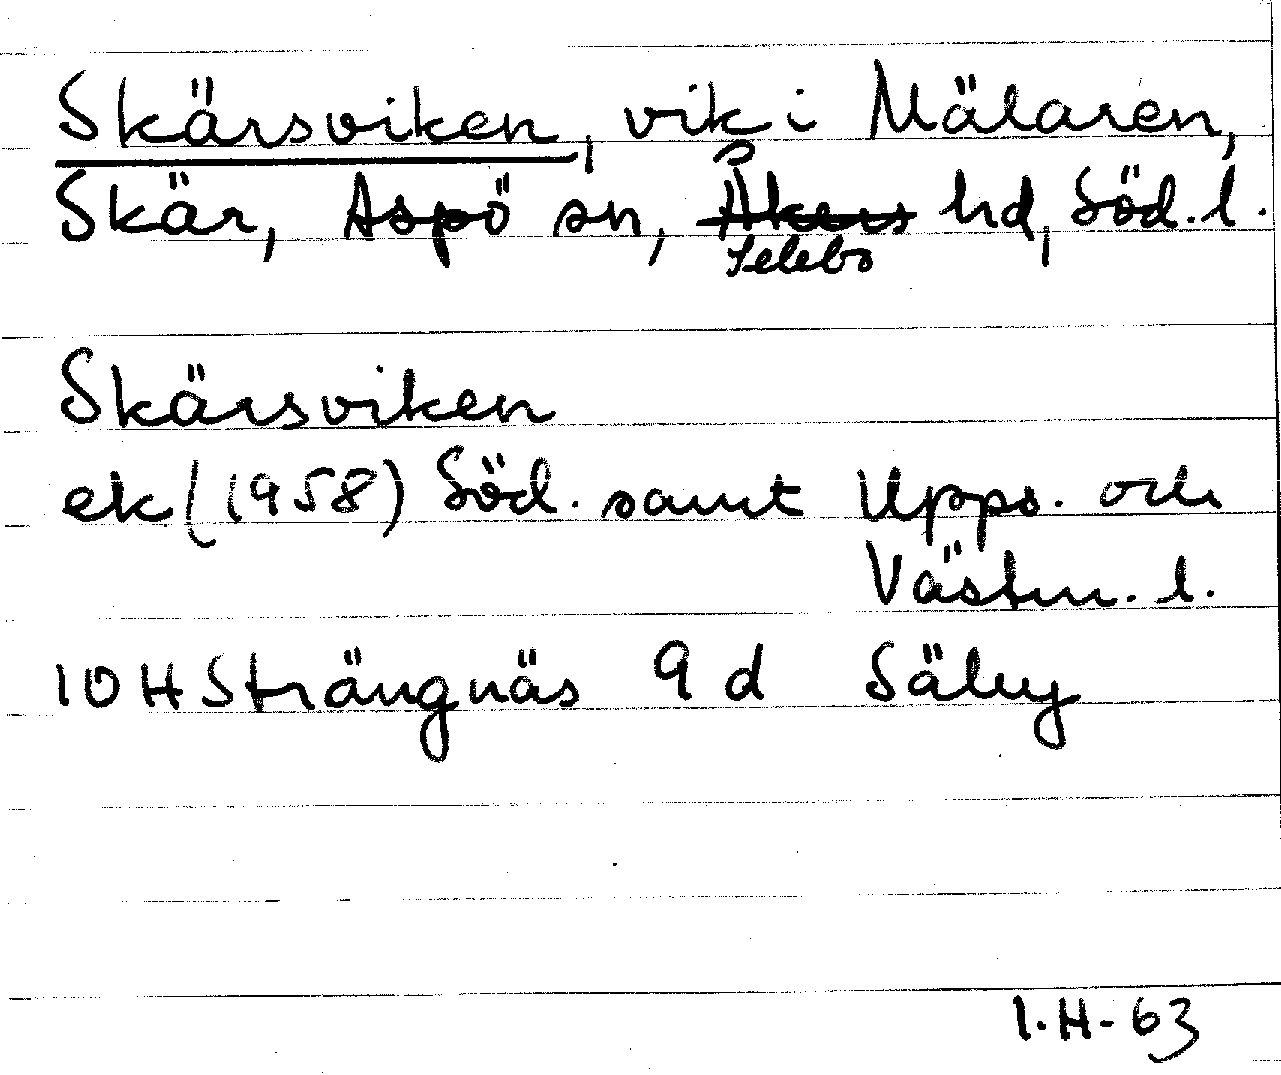 Skärsviken, vik i Mälaren,
Skär, Aspö sn, Åkers hd, Söd. l.
Selebo
Skärsviken
ek (1958) Söd. samt Upps. och
Västm. l.
10 H Strängnäs 9 d Säby
I.H-63